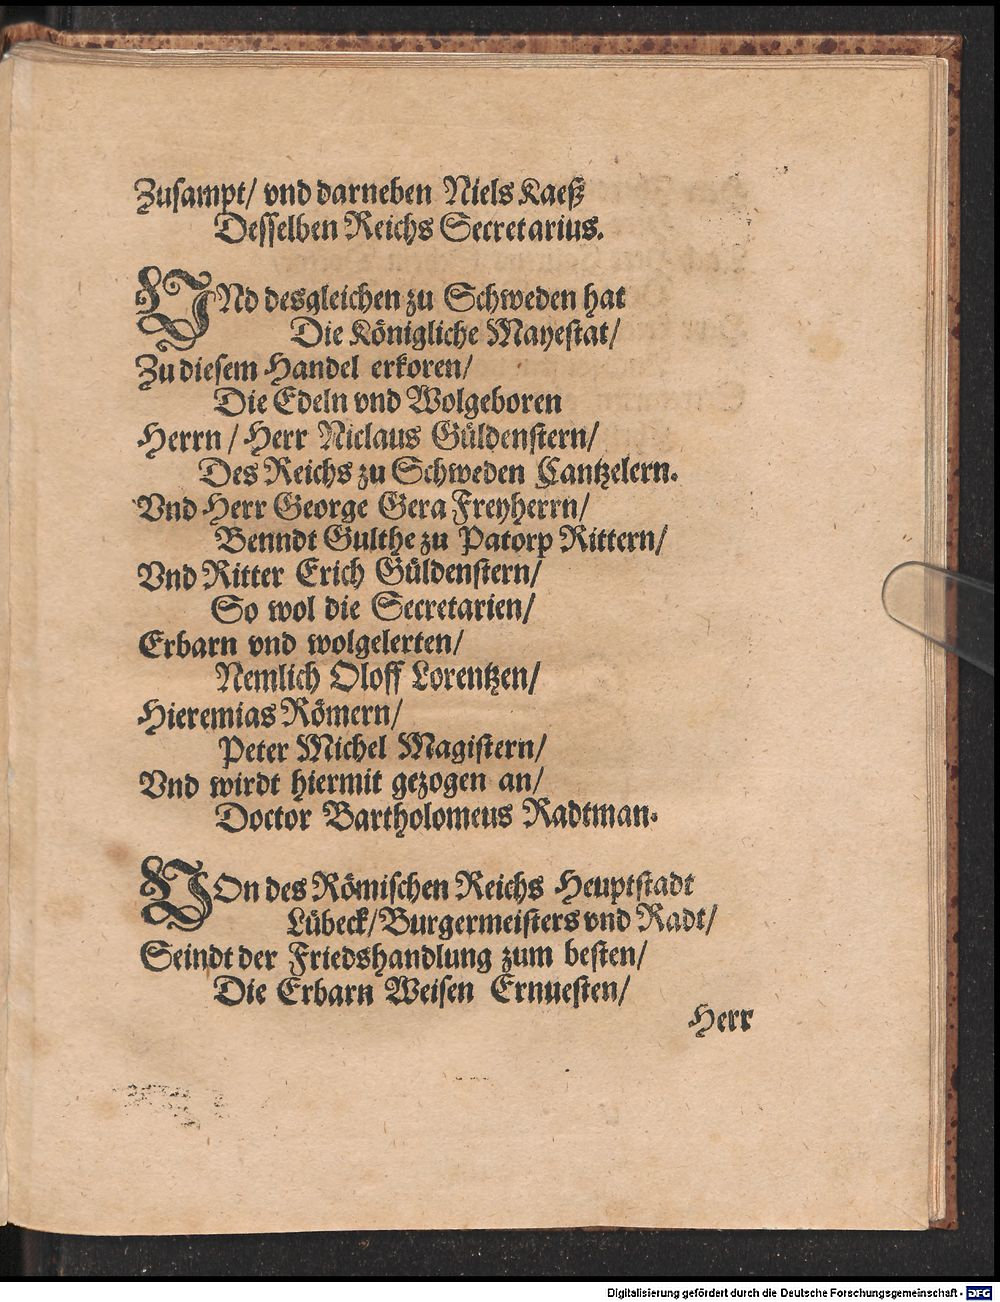 Zusampt/ vnd darneben Niels Kaeß
Desselben Reichs Secretarius.
VNd desgleichen zu Schweden hat
Die Königliche Mayestat/
Zu diesem Handel erkoren/
Die Edeln vnd Wolgeboren
Herrn/ Herr Niclaus Güldenstern/
Des Reichs zu Schweden Cantzelern.
Vnd Herr George Gera Freyherrn/
Benndt Gulthe zu Patorp Rittern/
Vnd Ritter Erich Güldenstern/
So wol die Secretarien/
Erbarn vnd wolgelerten/
Nemlich Oloff Lorentzen/
Hieremias Römern/
Peter Michel Magistern/
Vnd wirdt hiermit gezogen an/
Doctor Bartholomeus Radtman.
VOn des Römischen Reichs Heuptstadt
Lübeck/Burgermeisters vnd Radt/
Seindt der Friedshandlung zum besten/
Die Erbarn Weisen Ernuesten/
Herr
Digitalisierung gefördert durch die Deutsche Forschungsgemeinschaft - DFG